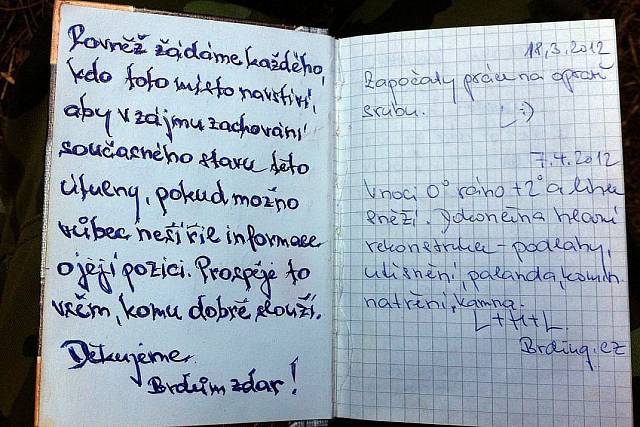 Rovněž žádáme každého,
kdo toto místo navštíví,
aby v zájmu zachování
současného stavu této
útulny, pokud možno
vůbec nešířil informace
o její pozici. Prospěje to
všem, komu dobře slouží.
Děkujeme.
Brdům zdar!
18.3.2012
Započaty práce na opravě
srubu.
L :)
7.4.2012
V noci 0° ráno +2° a lehce
sněží. Dokončena hlavní
rekonstrukce - podlahy,
utěsnění, palanda, komín.
natření, kamna.
L+H+L.
Brding.cz